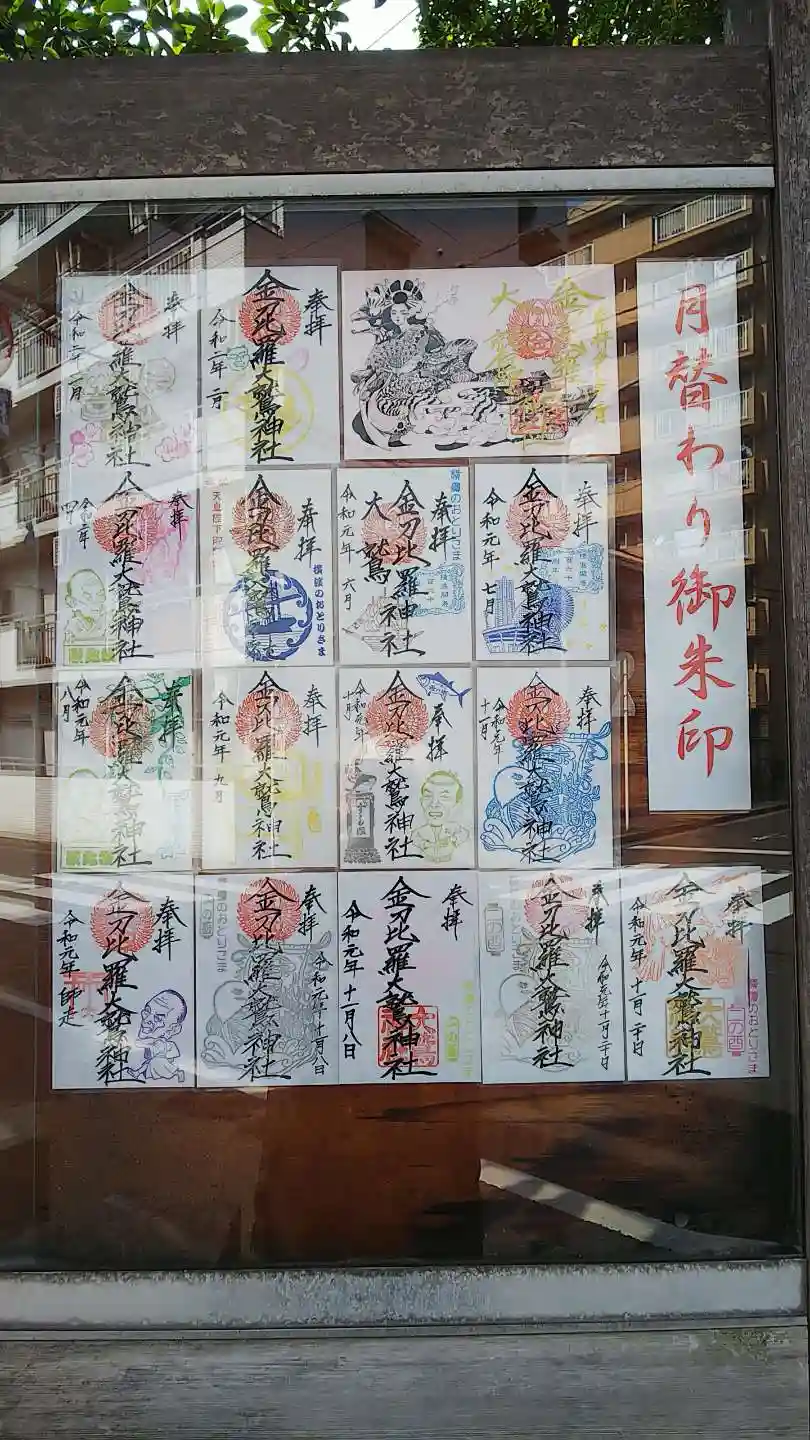 月替わり御朱印
奉拝
金刀比羅大鷲神社
令和二年二月
奉拝
金刀比羅大鷲神社
奉拝
金刀比羅大鷲神社
横濱のおとりさま
奉拝
金刀比羅大鷲神社
令和元年 六月
奉拝
金刀比羅大鷲神社
令和元年 七月
奉拝
金刀比羅大鷲神社
令和元年
八月
奉拝
金刀比羅大鷲神社
令和元年 九月
奉拝
金刀比羅大鷲神社
令和元年
十月
奉拝
金刀比羅大鷲神社
令和元年
十一月
奉拝
金刀比羅大鷲神社
令和元年 師走
奉拝
金刀比羅大鷲神社
令和元年十一月八日
横濱のおとりさま
奉拝
金刀比羅大鷲神社
令和元年 十一月八日
奉拝
金刀比羅大鷲神社
令和元年十一月二十日
奉拝
金刀比羅大鷲神社
令和元年 十一月 二十日
横濱のおとりさま
二の酉